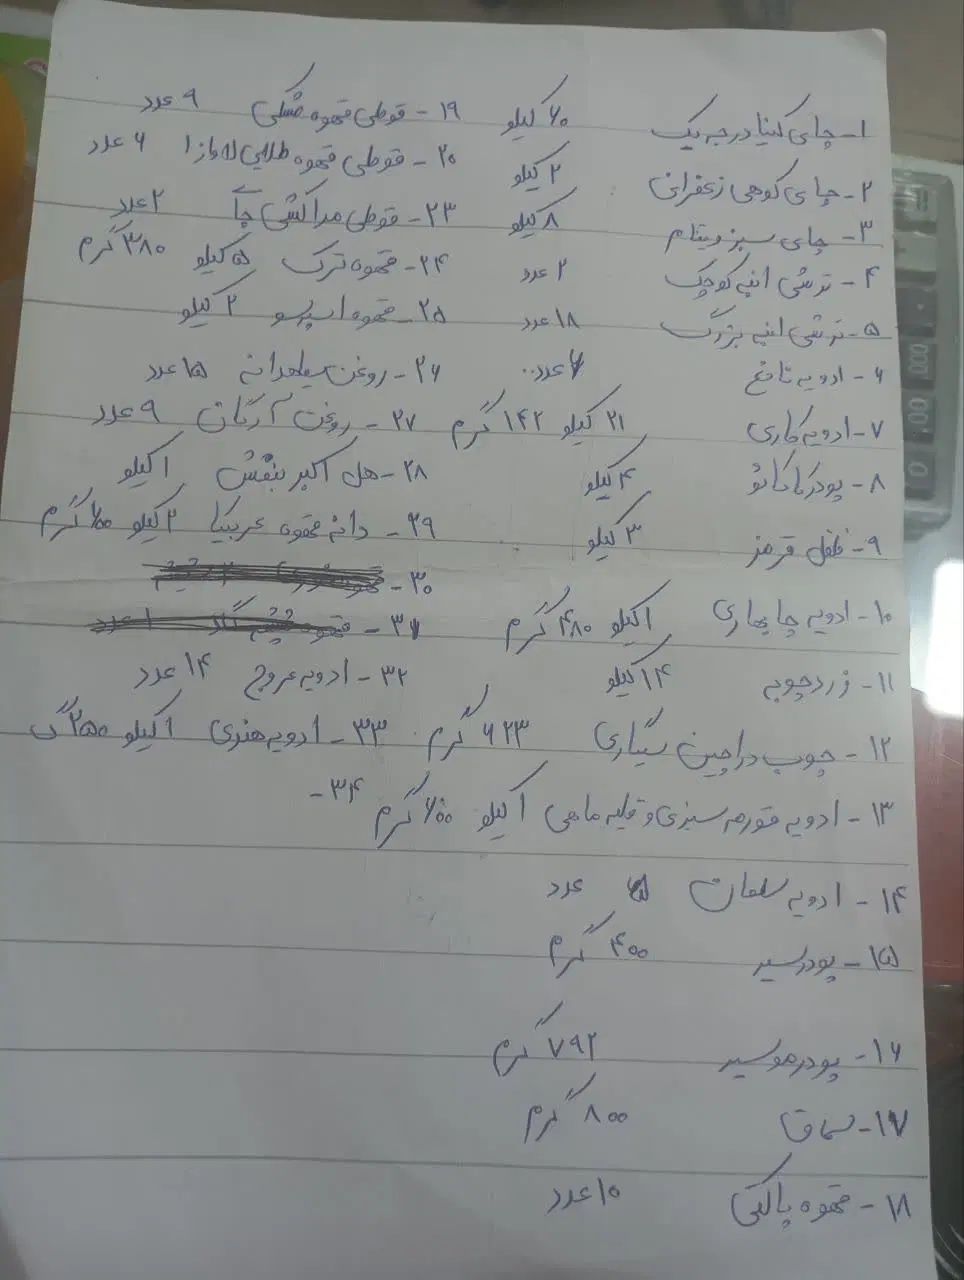 ۱- چای کنیا درجه یک ۶۰ کیلو
۲- چای کوهی زعفرانی ۲ کیلو
۳- چای سبز ویتنام ۸ کیلو
۴- ترشی انبه کوچک ۲ عدد
۵- ترشی انبه بزرگ ۱۸ عدد
۶- ادویه تافتح عدد
۷- ادویه کاری ۲۱ کیلو ۱۴۲ گرم
۸- پودر کاکائو ۴ کیلو
۹- فلفل قرمز ۳ کیلو
۱۰- ادویه چابهاری ۱ کیلو ۴۸۰ گرم
۱۱- زردچوبه ۱۴ کیلو
۱۲- چوب دارچین سیگاری ۶۲۳ گرم
۱۳- ادویه قورمه سبزی و قلیه ماهی ۱ کیلو ۶۰۰ گرم
۱۴- ادویه سلمان ۵ عدد
۱۵- پودر سیر ۴۰۰ گرم
۱۶- پودر موسیر ۷۹۲ گرم
۱۷- سماق ۸۰۰ گرم
۱۸- قهوه پاکتی ۱۰ عدد
۱۹- قوطی قهوه مشکی ۹ عدد
۲۰- قوطی قهوه طلایی لاوازا ۶ عدد
۲۳- قوطی مراکشی چای ۲ عدد
۲۴- قهوه ترک ۵ کیلو ۳۸۰ گرم
۲۵- قهوه اسپرسو ۲ کیلو
۲۶- روغن سیاهدانه ۱۵ عدد
۲۷- روغن آرگان ۹ عدد
۲۸- هل اکبر بنفش ۱ کیلو
۲۹- دانه قهوه عربیکا ۲ کیلو ۶۰۰ گرم
۳۰-
۳۱- قهوه
۳۲- ادویه عروج ۱۴ عدد
۳۳- ادویه هندی ۱ کیلو ۲۵۰ گ
۳۴-